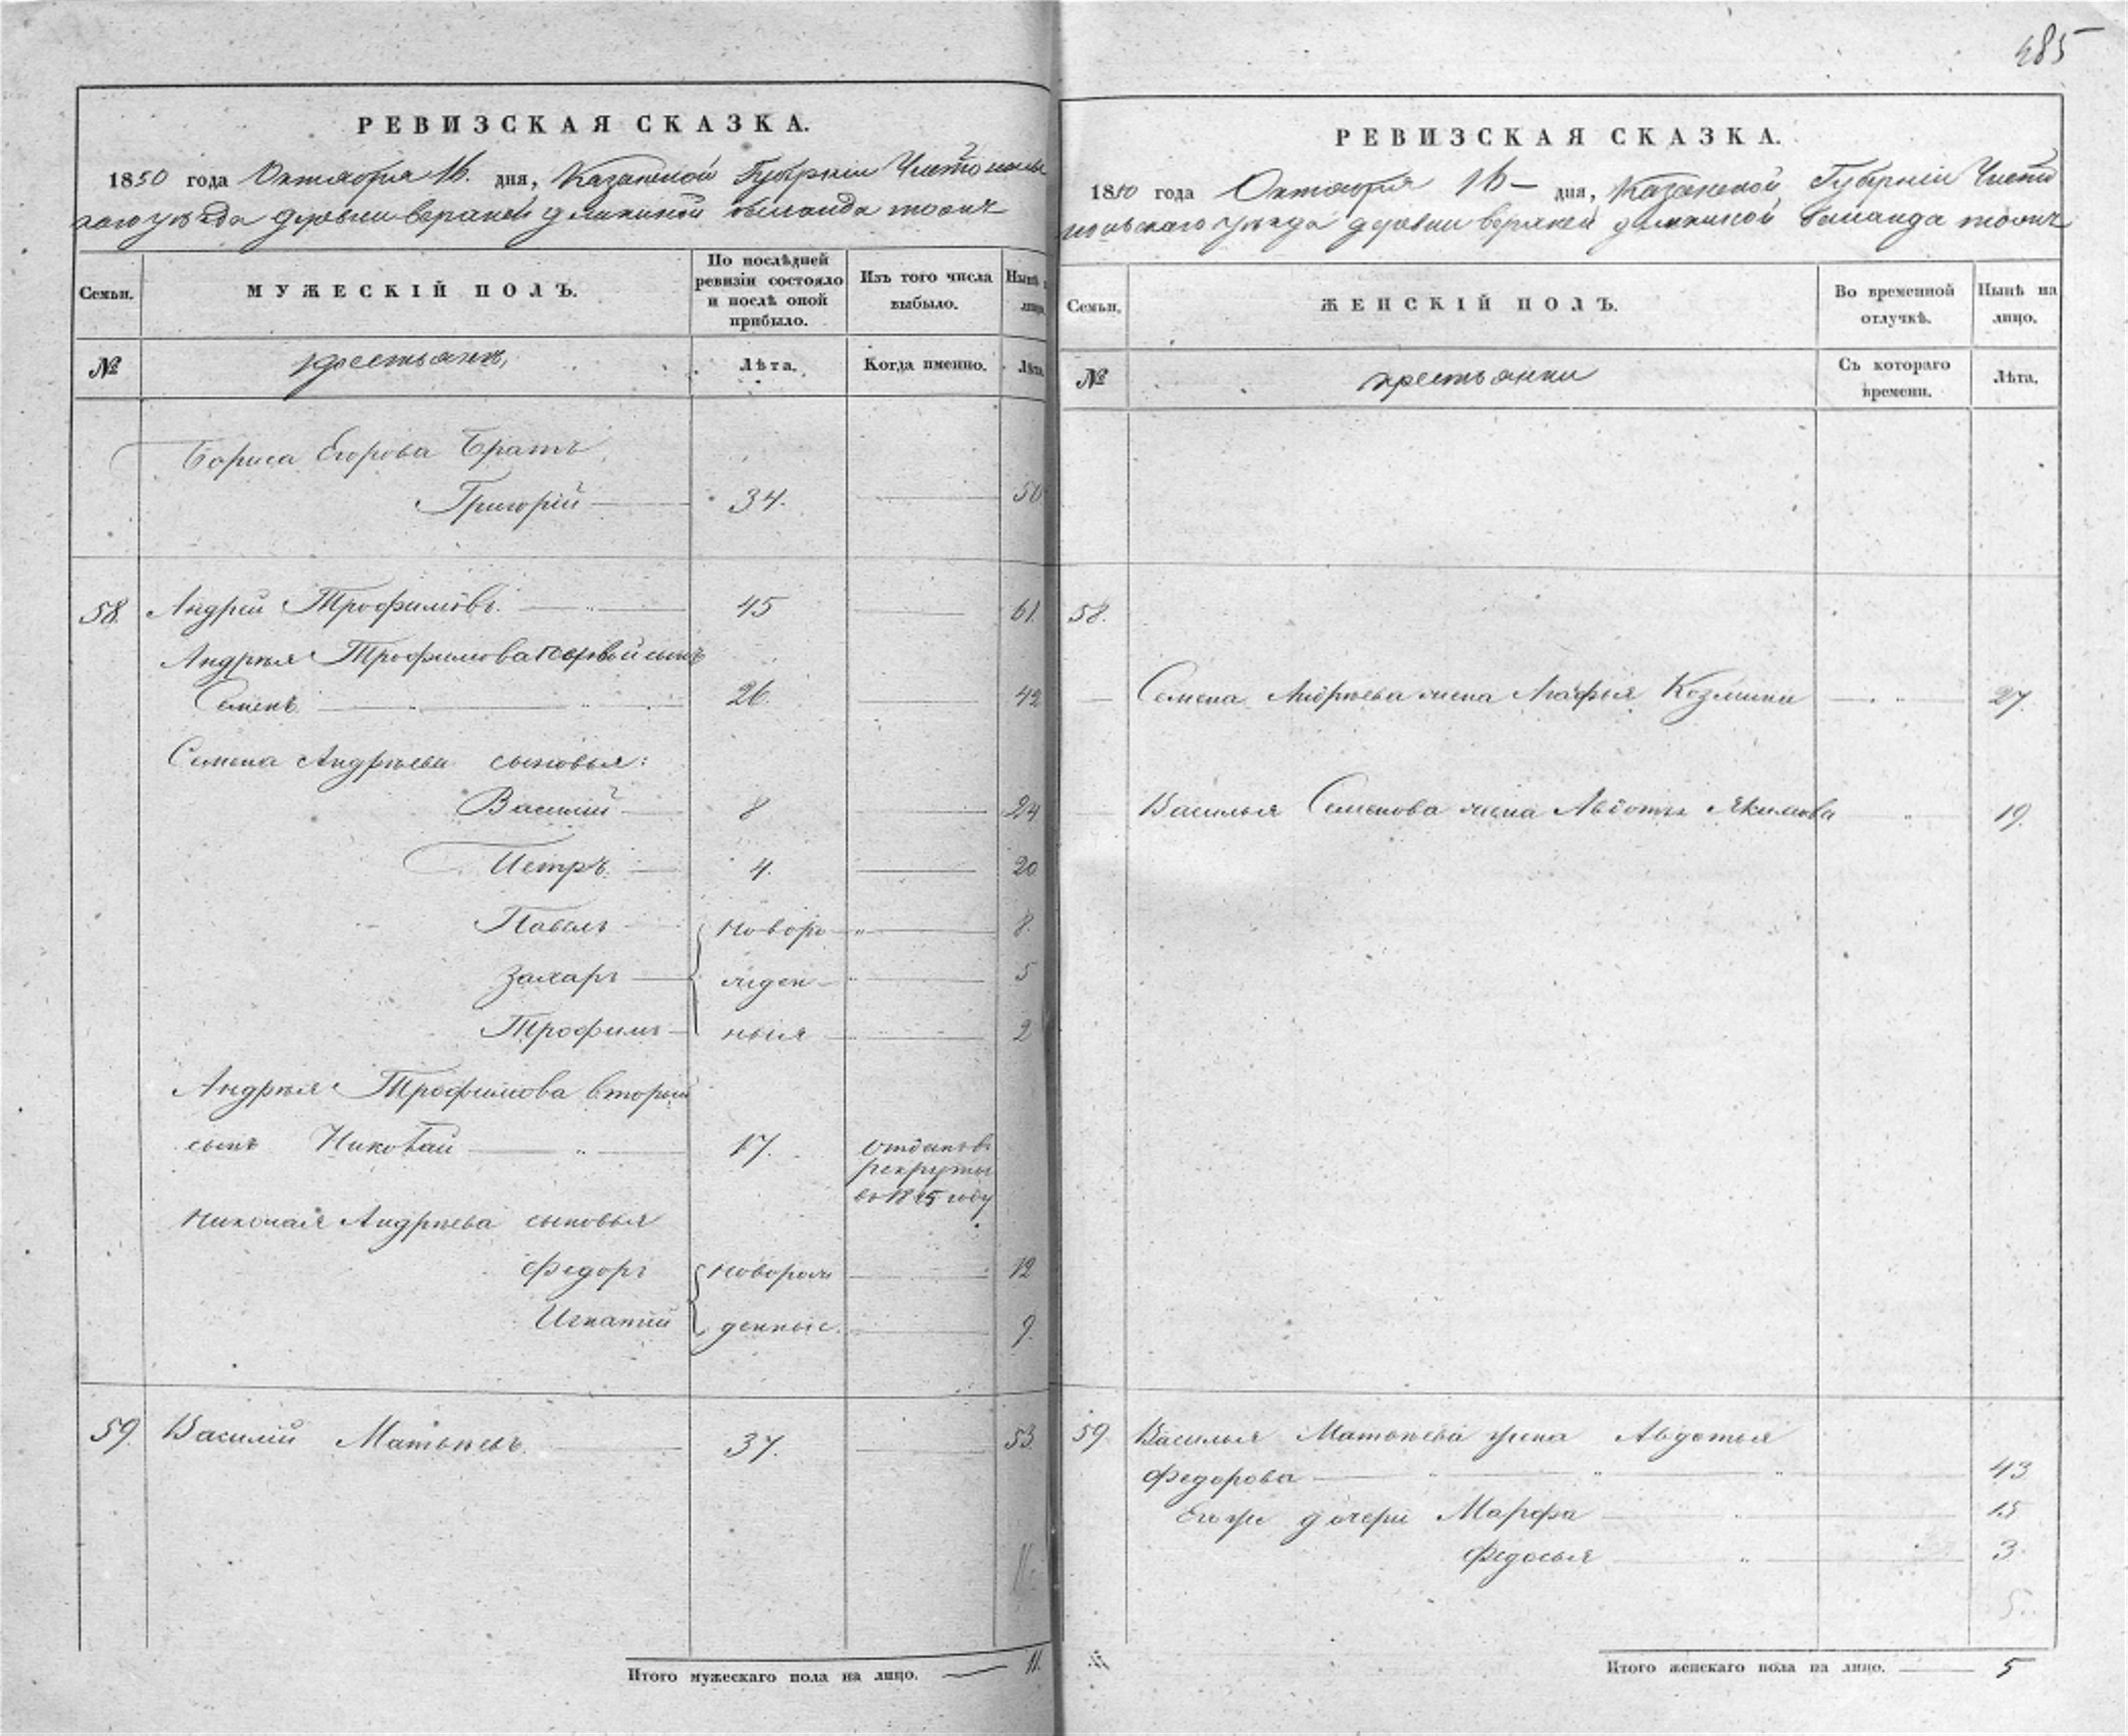 485
РЕВИЗСКАЯ СКАЗКА.
1850 года Октября 16. дня, Казанской Губерніи Чистополь
скаго уѣзда деревни верхней
МУЖЕСКІЙ ПОЛЪ.
Семьи.
По послѣдней ревизіи состояло и послѣ оной прибыло.
Изъ того числа выбыло.
Нынѣ на лицо.
№
крестьянъ,
Лѣта.
Когда именно.
Лѣта.
Бориса Егорова Братъ
Григорій 34. 50
58. Андрей Трофимовъ. 45 61.
Андрея Трофимова первой сынъ
Семенъ 26. 42
Семена Андрѣева сыновья:
Василій 8 24
Петръ 4. 20
Павелъ новоро 8.
Захаръ жден 5
Трофимъ ныя 2
Андрея Трофимова вторый
сынъ Николай 17. отданъ въ
рекруты
въ 1845 году
Николая Андрѣева сыновья
Федоръ новорож 12
Игнатій денные. 9.
59. Василій Матвѣевъ. 37. 53.
11.
Итого мужескаго пола на лицо. 11.
РЕВИЗСКАЯ СКАЗКА.
1850 года Октября 16 дня, Казанской Губерніи Чисто
польскаго уѣзда деревни верхней
Семьи.
ЖЕНСКІЙ ПОЛЪ.
Во временной отлучкѣ.
Нынѣ на лицо.
№
крестьянки
Съ котораго времени.
Лѣта.
58.
Семена Андрѣева жена Агафья Козмина 27.
Василья Семенова жена Авдотья Якимова 19.
59 Василья Матвѣева жена Авдотья
Федорова 43
Его же дочери Марфа 15
Федосья 3.
5.
Итого женскаго пола на лицо. 5